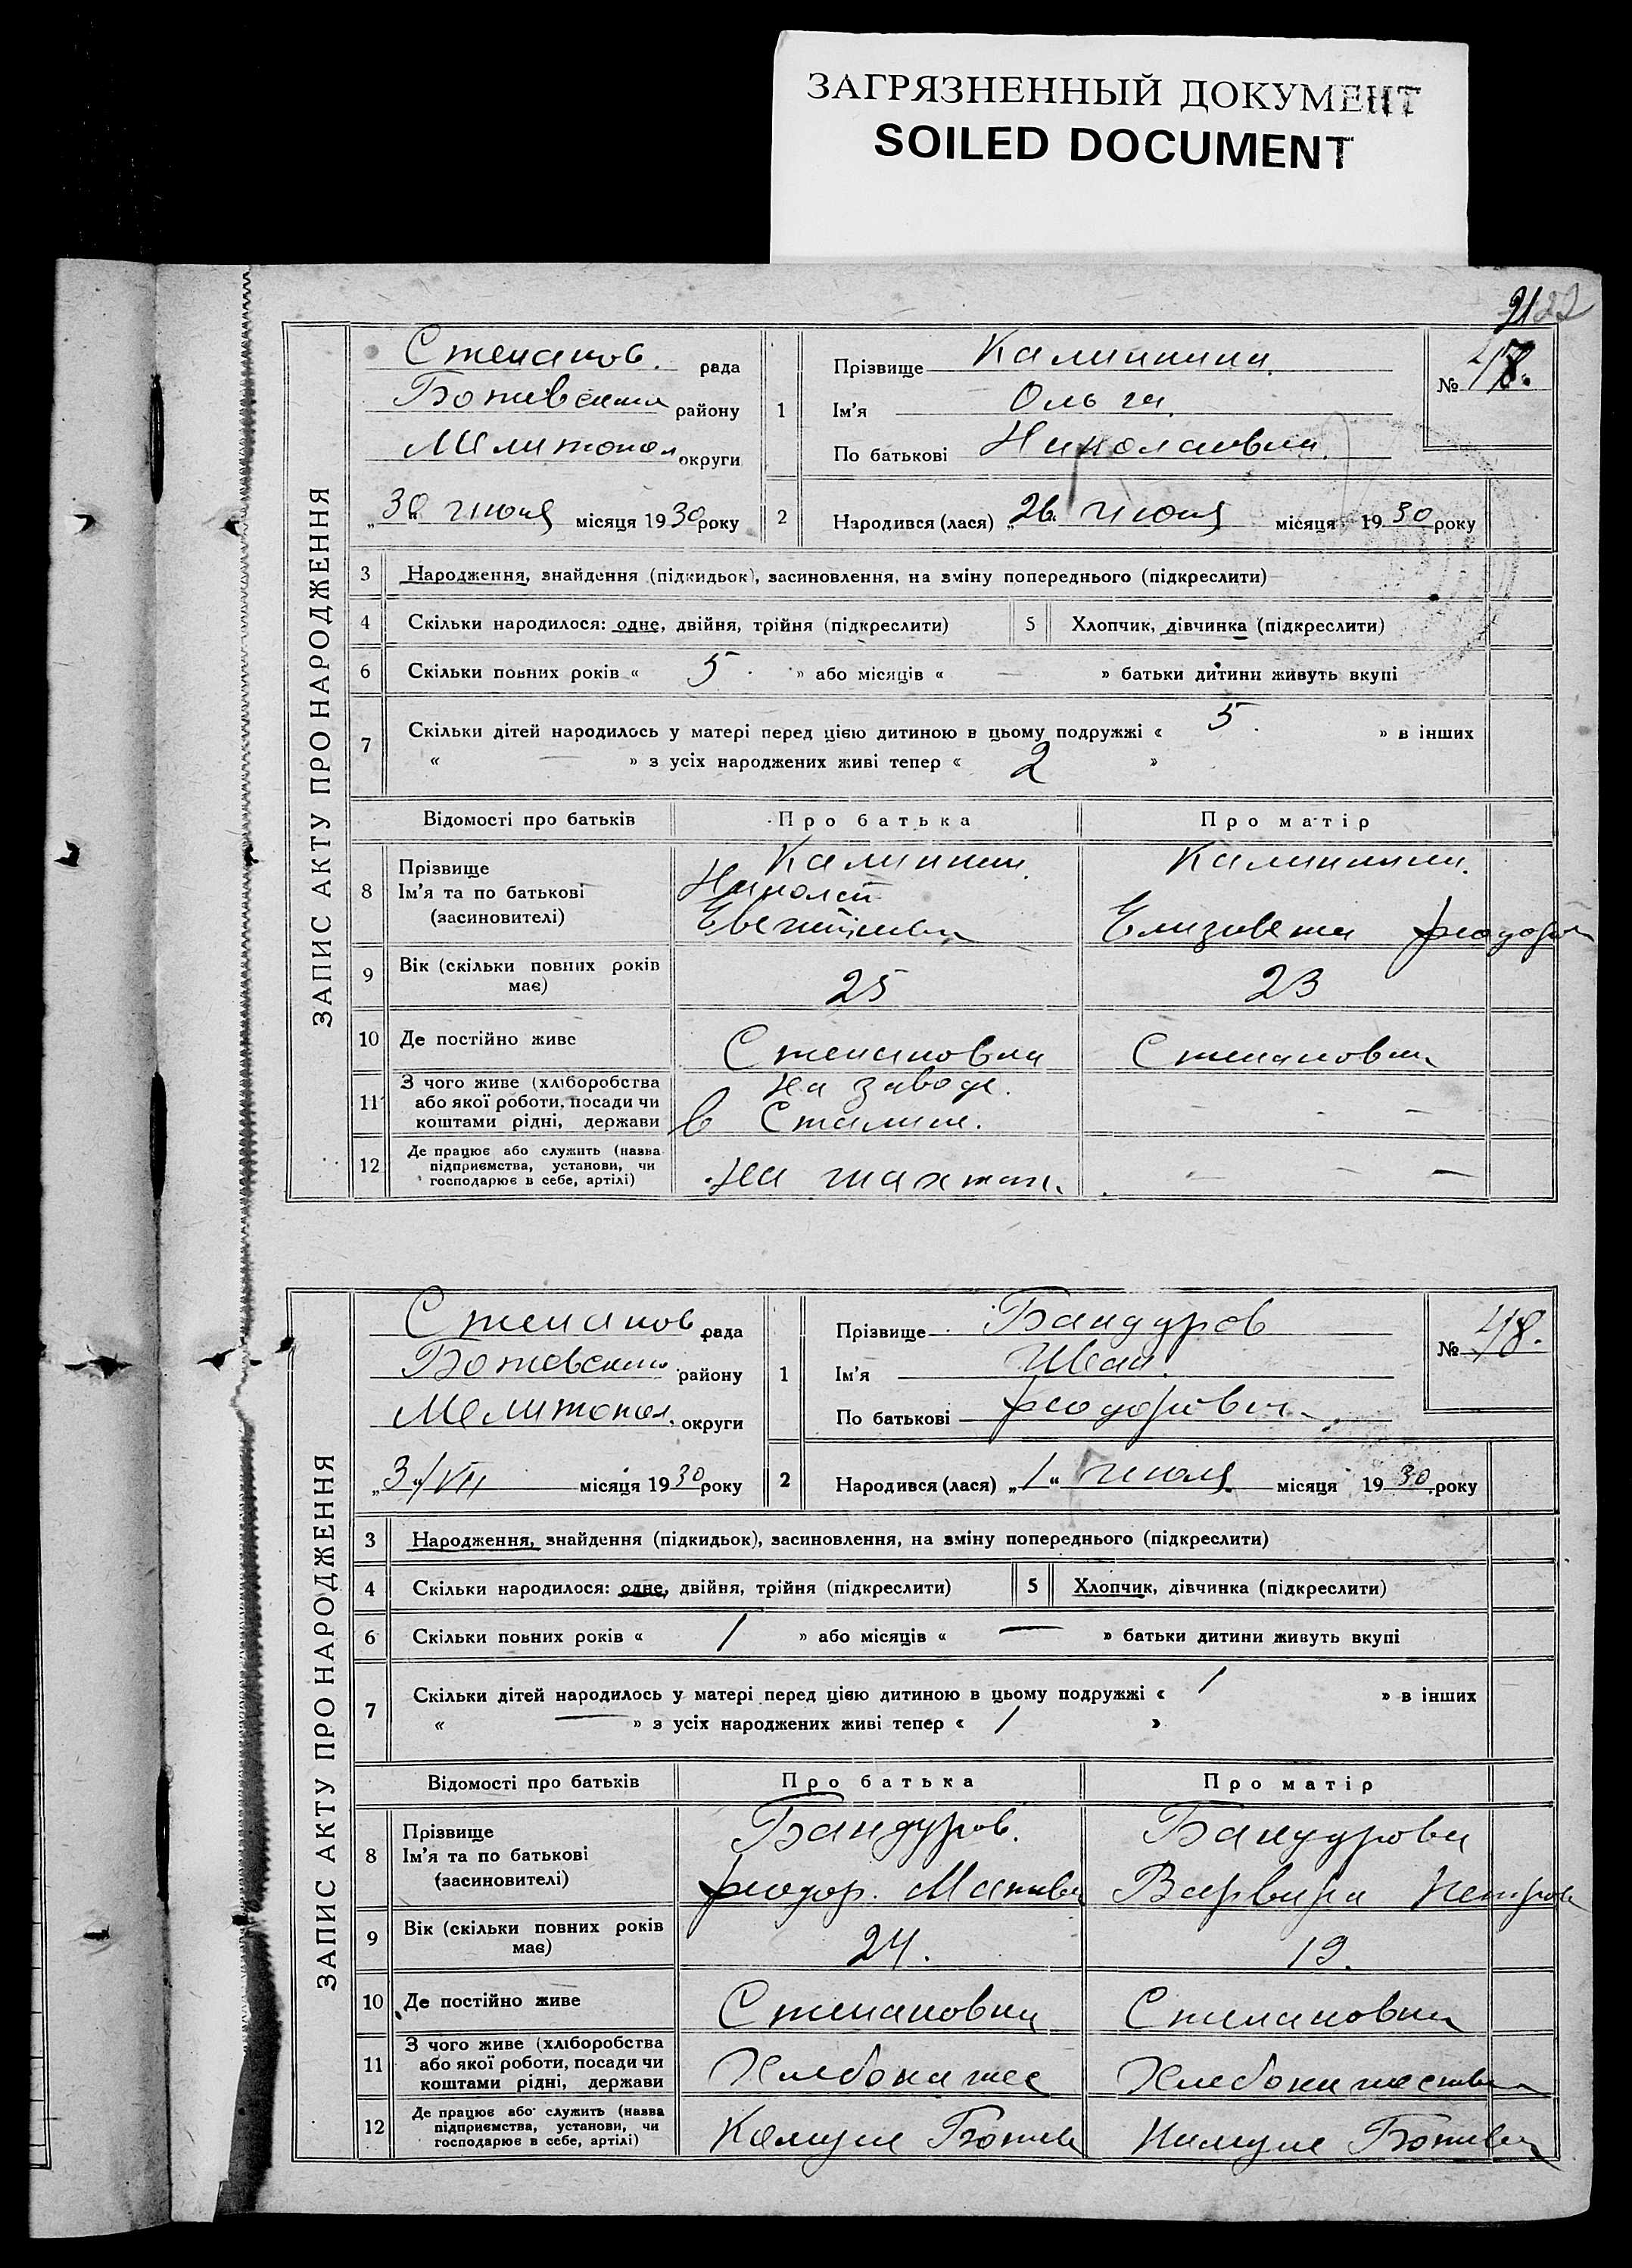 ЗАГРЯЗНЕННЫЙ ДОКУМЕНТ
SOILED DOCUMENT
ЗАПИС АКТУ ПРО НАРОДЖЕННЯ
Степанов. рада
района району
Мелитопол округи
„30“ Июня місяця 1930 року
1
Прізвище Калинина.
Ім'я Ольга.
По батькові Николаевна.
№ 47.
2
Народився (лася) „26“ Июня місяця 1930 року
3 Народження, знайдення (підкидьок), засиновлення, на зміну попереднього (підкреслити)
4 Скільки народилося: одне, двійня, трійня (підкреслити)
5 Хлопчик, дівчинка (підкреслити)
6 Скільки повних років « 5 » або місяців « — » батьки дитини живуть вкупі
7 Скільки дітей народилось у матері перед цією дитиною в цьому подружжі « 5 » в інших
« — » з усіх народжених живі тепер « 2 »
Відомості про батьків Про батька Про матір
8 Прізвище
Ім'я та по батькові
(засиновителі)
Калинин.
Николай
Калинина.
Елизавета Феодоров
9 Вік (скільки повних років має) 25 23
10 Де постійно живе Степановка Степановка
11 З чого живе (хліборобства
або якої роботи, посади чи
коштами рідні, держави
на заводе.
в Сталине.
12 Де працює або служить (назва
підприємства, установи, чи
господарює в себе, артілі)
на шахтах.
ЗАПИС АКТУ ПРО НАРОДЖЕННЯ
Степанов рада
району
Мелитопол. округи
„3“/VII місяця 1930 року
1
Прізвище Бандуров
Ім'я Иван.
По батькові Феодорович
№ 48.
2
Народився (лася) „1“ Июля місяця 1930 року
3 Народження, знайдення (підкидьок), засиновлення, на зміну попереднього (підкреслити)
4 Скільки народилося: одне, двійня, трійня (підкреслити)
5 Хлопчик, дівчинка (підкреслити)
6 Скільки повних років « 1 » або місяців « — » батьки дитини живуть вкупі
7 Скільки дітей народилось у матері перед цією дитиною в цьому подружжі « 1 » в інших
« — » з усіх народжених живі тепер « 1 »
Відомості про батьків Про батька Про матір
8 Прізвище
Ім'я та по батькові
(засиновителі)
Бандуров.
Феодор.
Бандурова
Варвара Петров
9 Вік (скільки повних років має) 24. 19.
10 Де постійно живе Степановка Степановка
11 З чого живе (хліборобства
або якої роботи, посади чи
коштами рідні, держави
Хлебопашес Хлебопашество
12 Де працює або служить (назва
підприємства, установи, чи
господарює в себе, артілі)